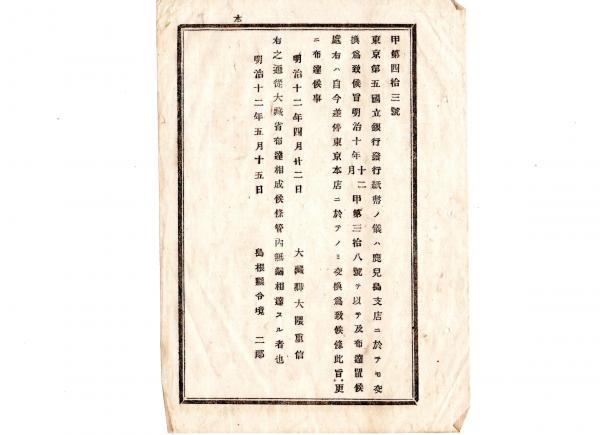 甲第四拾三號
東京第五國立銀行發行紙幣ノ儀ハ鹿兒島支店ニ於テモ交
換爲致候旨明治十年十二月甲第三拾八號ヲ以テ及布達置候
處右ハ自今差停東京本店ニ於テノミ交換爲致候條此旨更
ニ布達候事
明治十二年四月廿二日 大藏卿大隈重信
右之通從大藏省布達相成候條管內無漏相達スル者也
明治十二年五月十五日 島根縣令境二郎
本